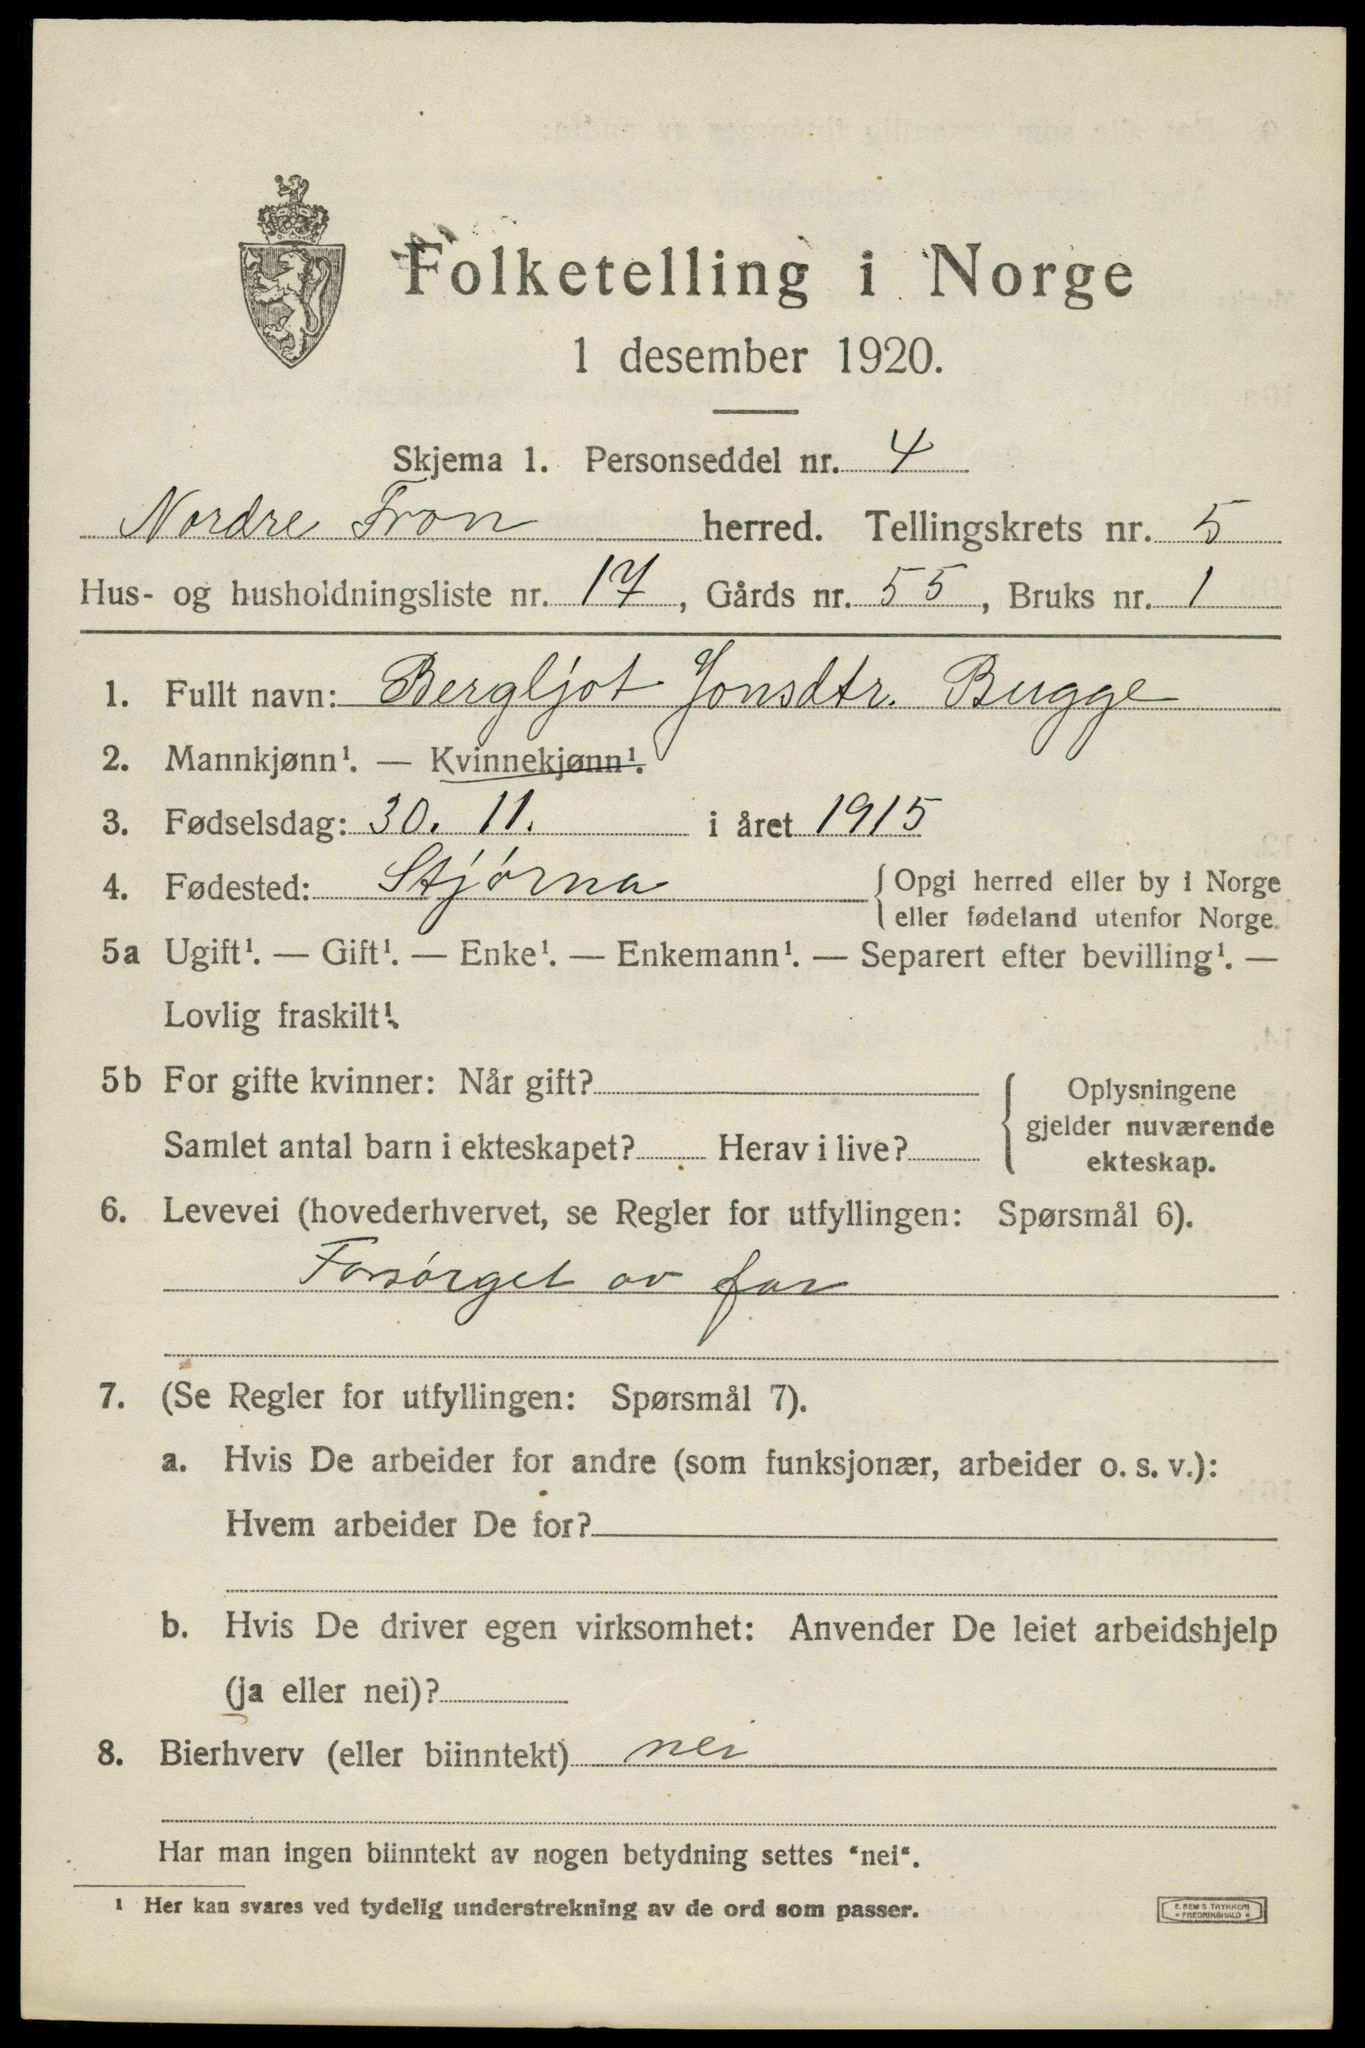 Folketelling i Norge
1 desember 1920.
Skjema 1. Personseddel nr. 4
Nordre Fron herred. Tellingskrets nr. 5
Hus- og husholdningsliste nr. 17, Gårds nr. 55, Bruks nr. 1
1. Fullt navn: Bergljot Jonsdtr. Bugge
2. Mannkjønn¹. — Kvinnekjønn¹.
3. Fødselsdag: 30. 11. i året 1915
4. Fødested: Stjørna { Opgi herred eller by i Norge
eller fødeland utenfor Norge.
5a Ugift¹. — Gift¹. — Enke¹. — Enkemann¹. — Separert efter bevilling¹. —
Lovlig fraskilt¹.
5b For gifte kvinner: Når gift?
Samlet antal barn i ekteskapet? Herav i live?
Oplysningene
gjelder nuværende
ekteskap.
6. Levevei (hovederhvervet, se Regler for utfyllingen: Spørsmål 6).
Forsørget av far
7. (Se Regler for utfyllingen: Spørsmål 7).
a. Hvis De arbeider for andre (som funksjonær, arbeider o. s. v.):
Hvem arbeider De for?
b. Hvis De driver egen virksomhet: Anvender De leiet arbeidshjelp
(ja eller nei)?
8. Bierhverv (eller biinntekt) nei
Har man ingen biinntekt av nogen betydning settes "nei".
¹ Her kan svares ved tydelig understrekning av de ord som passer.
E. SEM'S TRYKKERI
* FREDRIKSHALD *